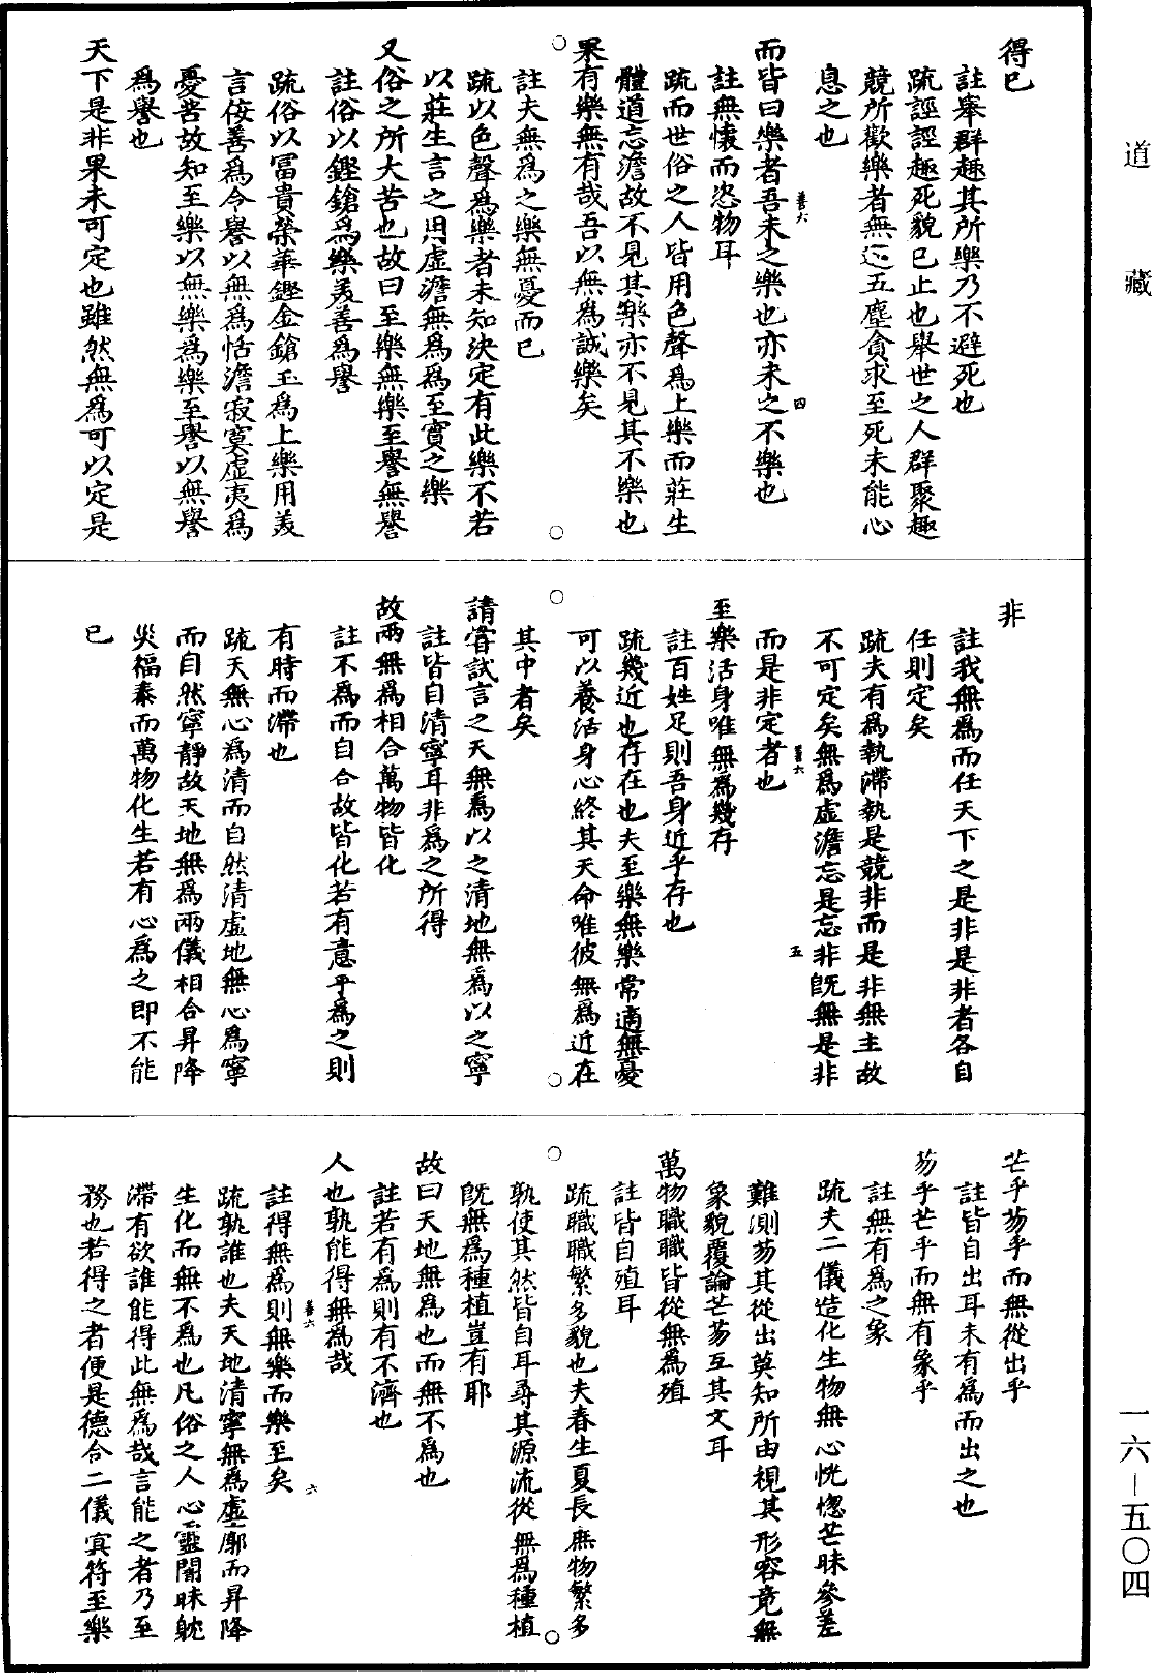 道藏
一六—五〇四
得已
註舉群趣其所樂乃不避死也
疏誙誙趣死貌已止也舉世之人群聚趣
競所歡樂者無過五塵貪求至死未能心
息之也
而皆曰樂者吾未之樂也亦未之不樂也
善六
四
註無懷而恣物耳
疏而世俗之人皆用色聲爲上樂而莊生
體道忘澹故不見其樂亦不見其不樂也
果有樂無有哉吾以無爲誠樂矣
註夫無爲之樂無憂而已
疏以色聲爲樂者未知決定有此樂不若
以莊生言之用虛澹無爲爲至實之樂
又俗之所大苦也故曰至樂無樂至譽無譽
註俗以鏗鎗爲樂美善爲譽
疏俗以富貴榮華鏗金鎗玉爲上樂用美
言佞善爲令譽以無爲恬澹寂寞虛夷爲
憂苦故知至樂以無樂爲樂至譽以無譽
爲譽也
天下是非果未可定也雖然無爲可以定是
非
註我無爲而任天下之是非是非者各自
任則定矣
疏夫有爲執滯執是競非而是非無主故
不可定矣無爲虛澹忘是忘非旣無是非
而是非定者也
善六
五
至樂活身唯無爲幾存
註百姓足則吾身近乎存也
疏幾近也存在也夫至樂無樂常適無憂
可以養活身心終其天命唯彼無爲近在
其中者矣
請嘗試言之天無爲以之清地無爲以之寧
註皆自清寧耳非爲之所得
故兩無爲相合萬物皆化
註不爲而自合故皆化若有意乎爲之則
有時而滯也
疏天無心爲清而自然清虛地無心爲寧
而自然寧靜故天地無爲兩儀相合昇降
災福泰而萬物化生若有心爲之即不能
已
芒乎芴乎而無從出乎
註皆自出耳未有爲而出之也
芴乎芒乎而無有象乎
註無有爲之象
疏夫二儀造化生物無心恍惚芒昧參差
難測芴其從出莫知所由視其形容竟無
象貌覆論芒芴互其文耳
萬物職職皆從無爲殖
註皆自殖耳
疏職職繁多貌也夫春生夏長庶物繁多
孰使其然皆自耳尋其源流從無爲種植
旣無爲種植豈有耶
故曰天地無爲也而無不爲也
註若有爲則有不濟也
人也孰能得無爲哉
註得無爲則無樂而樂至矣
善六
六
疏孰誰也夫天地清寧無爲虛廓而昇降
生化而無不爲也凡俗之人心靈闇昧躭
滯有欲誰能得此無爲哉言能之者乃至
務也若得之者便是德合二儀冥符至樂